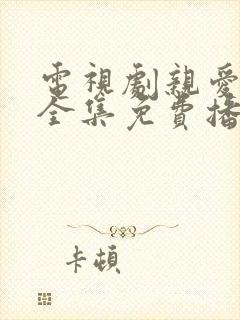 電視劇親愛
全集免費播
卡頓